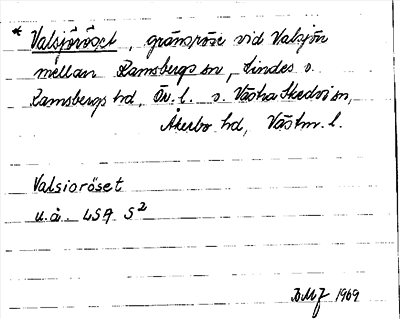 * Valsjöröset, gränsröse vid Valsjön
mellan Ramsbergs sn, Lindes o.
Ramsbergs hd, Ör. l. o. Västra Skedvi sn,
Åkerbo hd, Västm. l.
Valsioröset
u.å. LSA S2
BMJ 1969